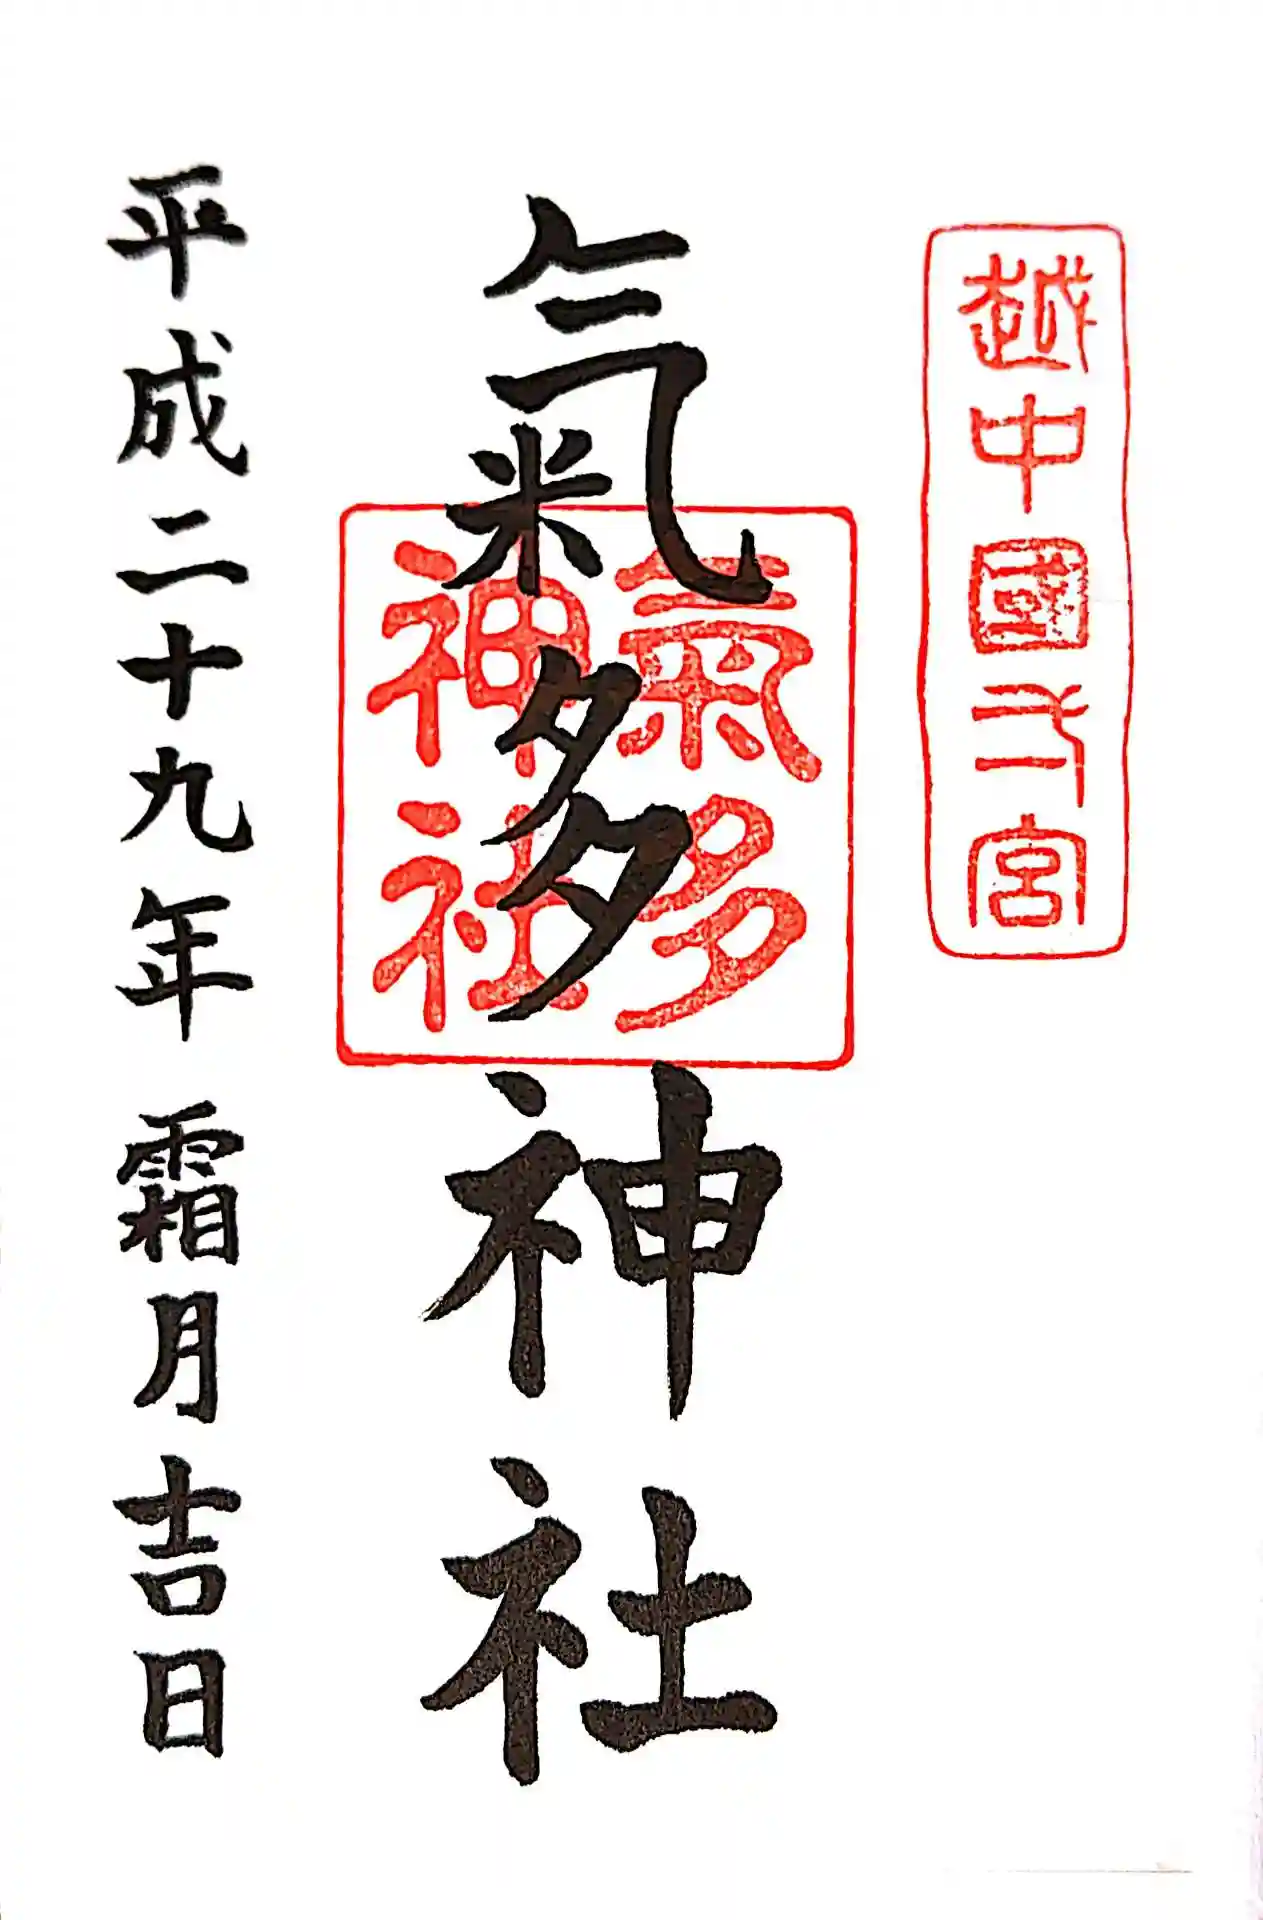 越中國一宮
氣多神社
氣多
神社
平成二十九年 霜月吉日